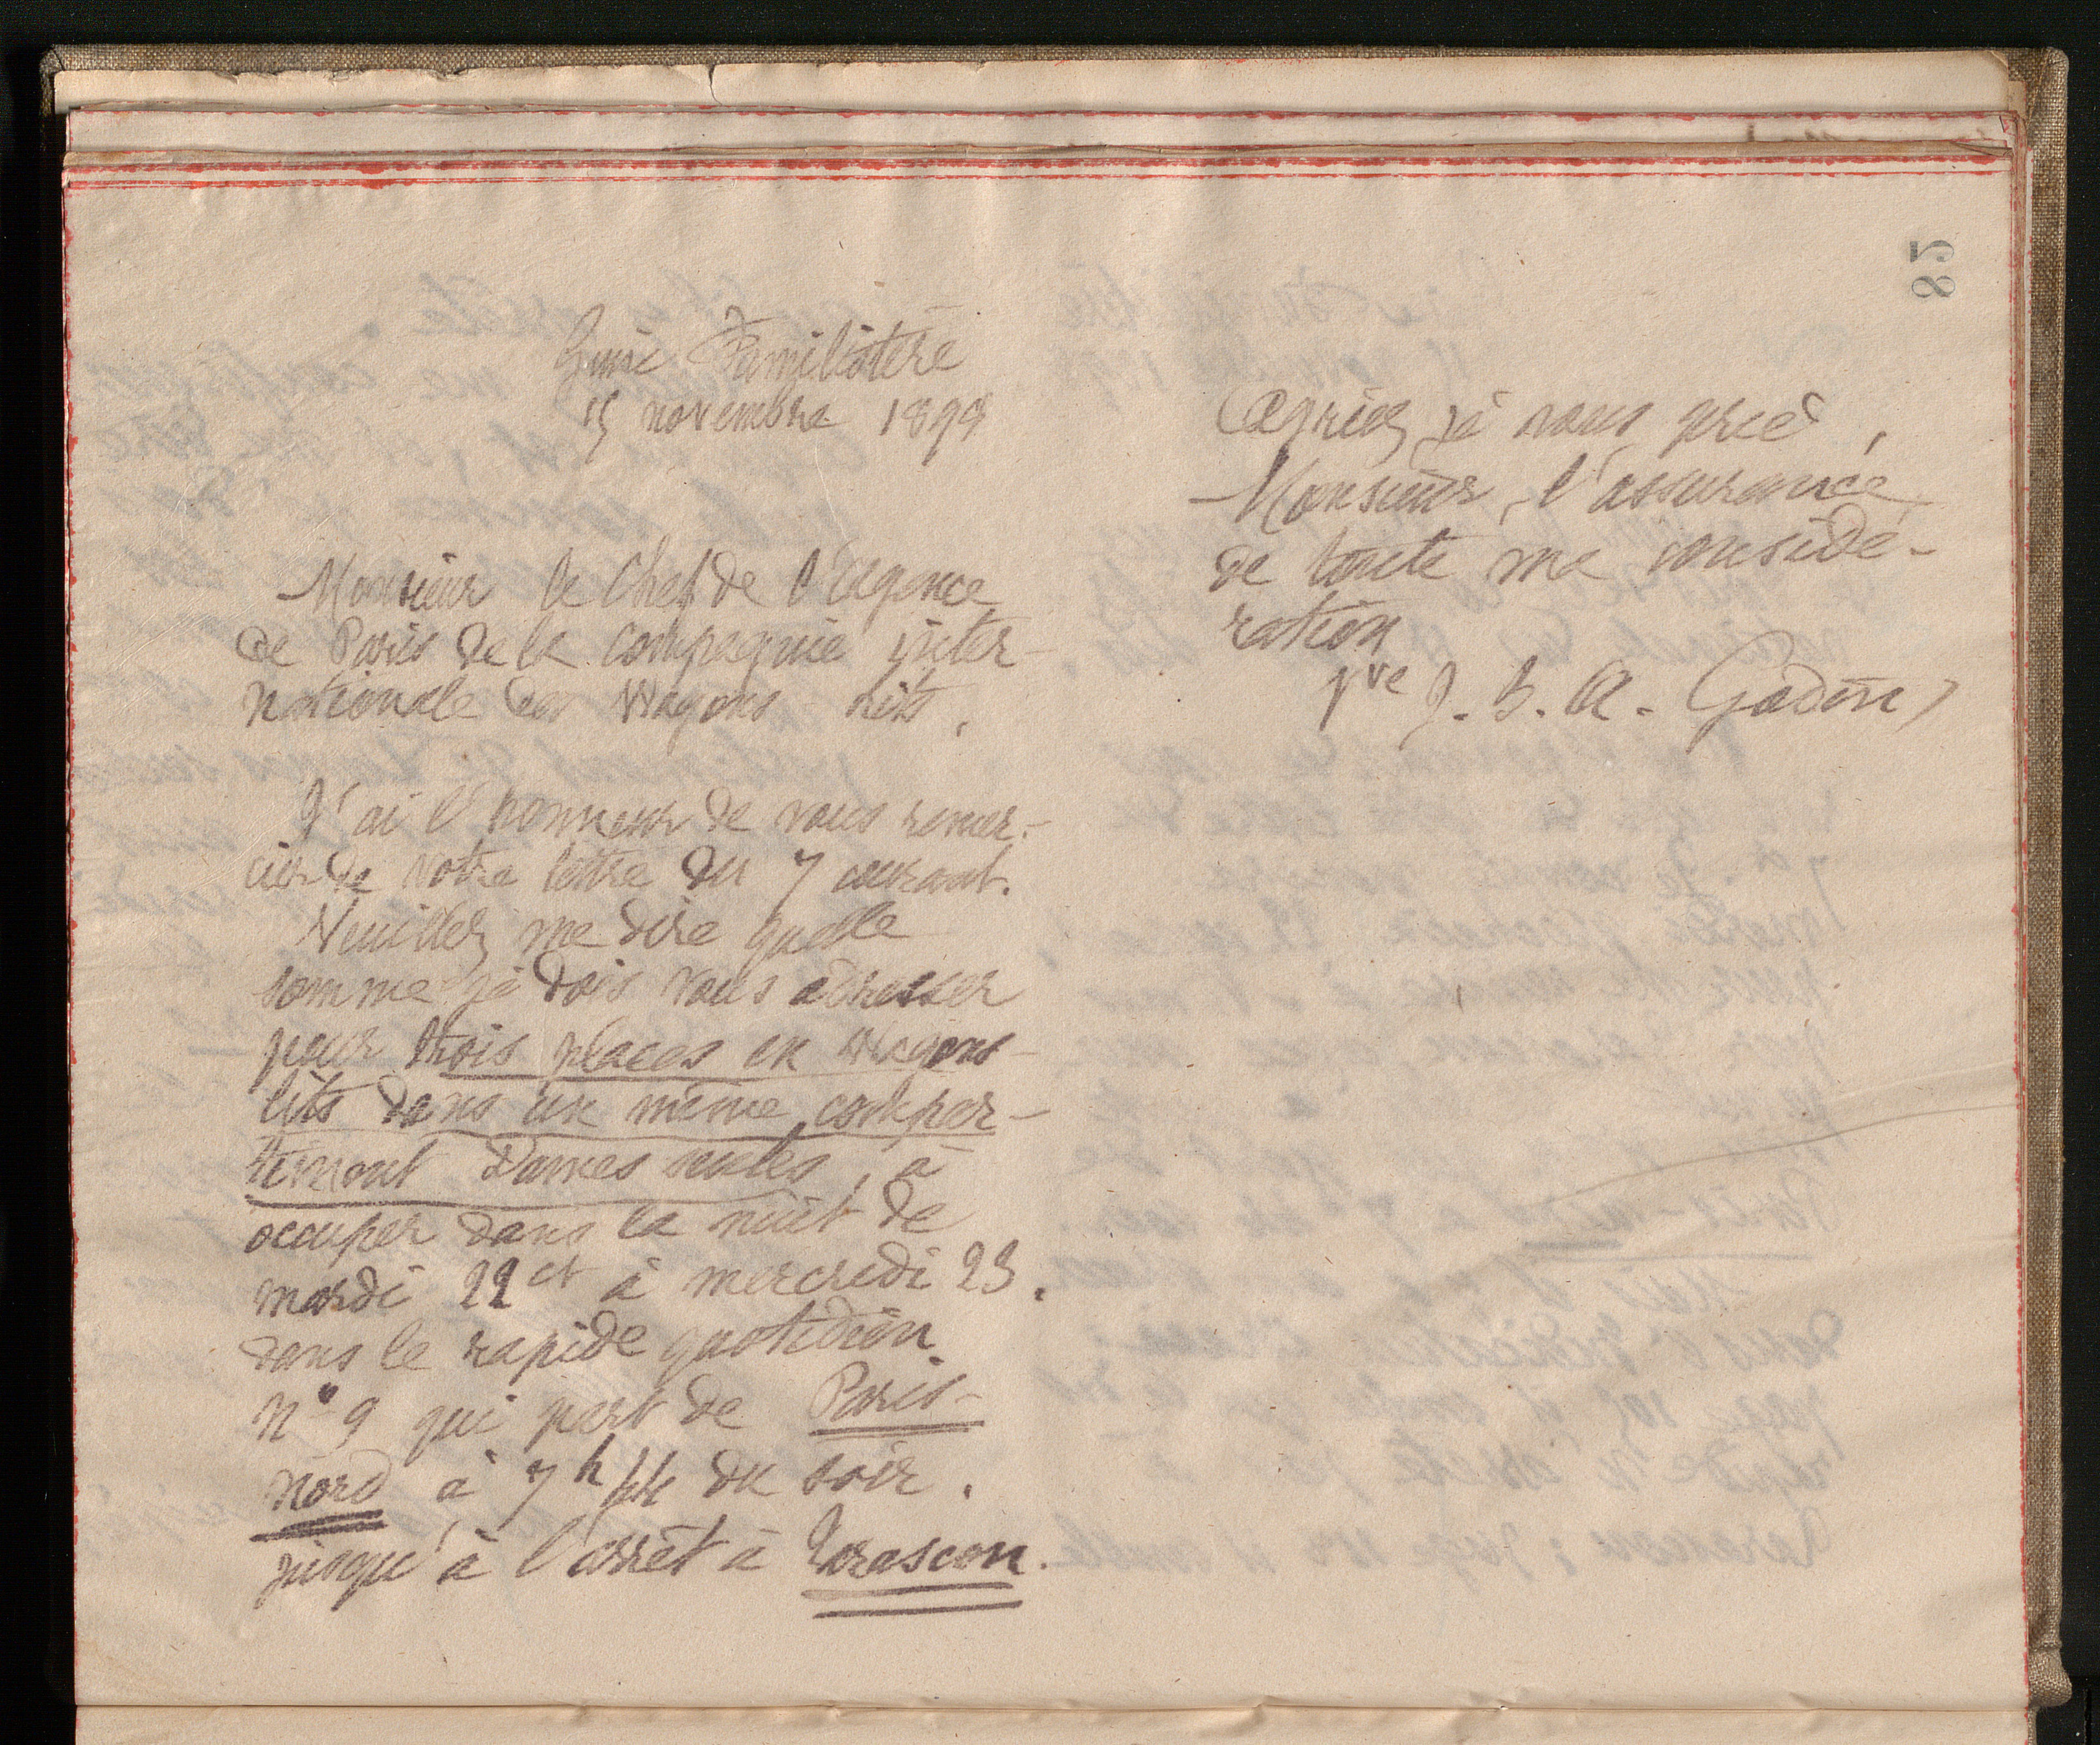 Guise Familistère
15 novembre 1898
Monsieur le Chef de l'Agence
de Paris de la Compagnie inter-
nationale des Wagons lits.
J'ai l'honneur de vous remer-
cier de votre lettre du 7 courant.
Veuillez me dire quelle
somme je dois vous adresser
pour trois places en Wagons-
lits dans un même compar-
timent Dames seules, à
occuper dans la nuit de
mardi 22 ct à mercredi 23.
dans le rapide quotidien
n° 9 qui part de Paris-
nord à 7h du soir.
jusqu'à l'arrêt à Tarascon.
Agréez, je vous prie,
Monsieur, l'assurance
de toute ma considé-
ration
Vve J. B. A. Godin
85